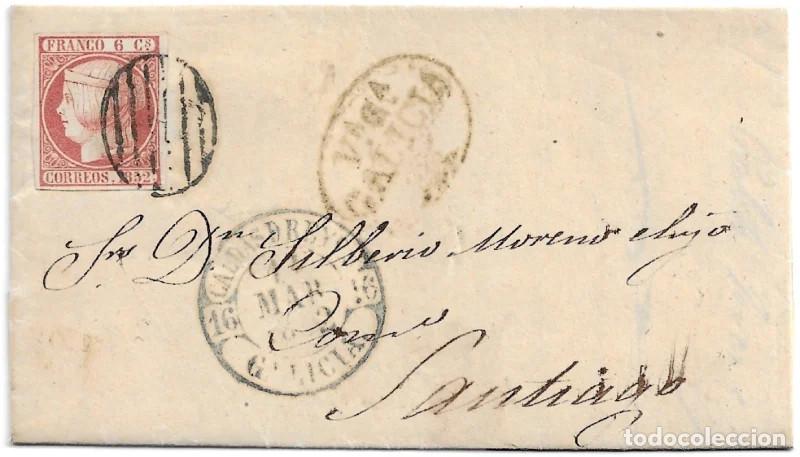 FRANCO 6 Cs
CORREOS. 1852.
GALICIA
CALDAS D REYES
16 16
MAR
GALICIA
Sr Dn Silberio Moreno e hijo
Santiago
todocoleccion
todocoleccion.net